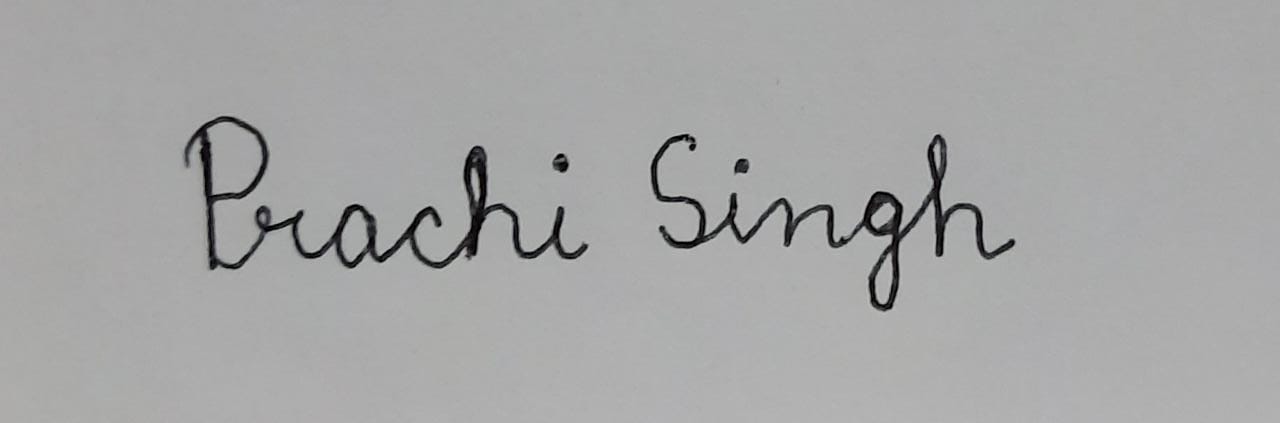 Prachi Singh